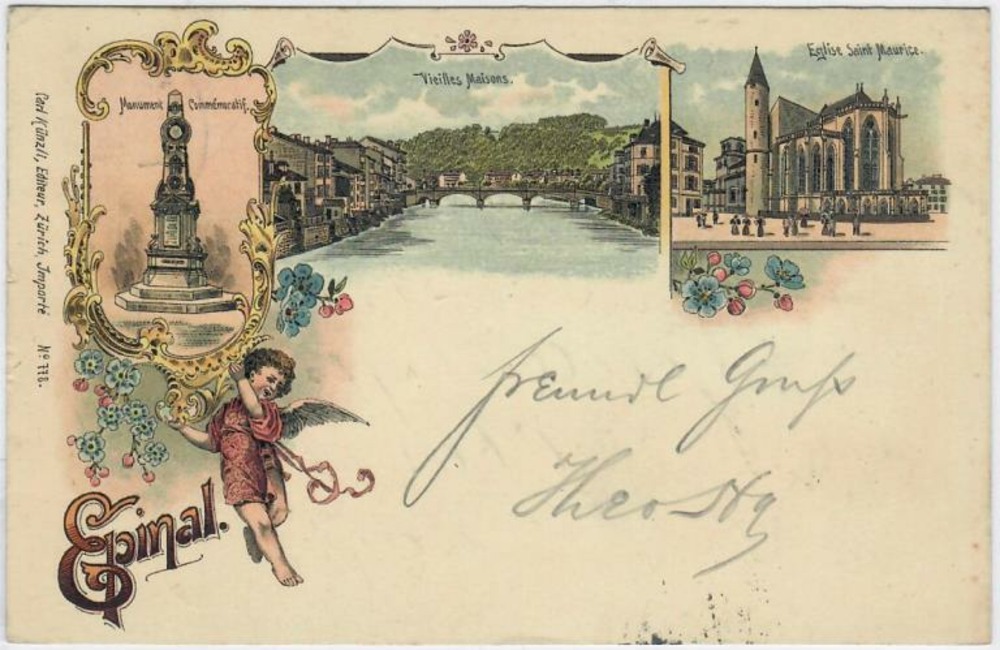 Monument Commémoratif.
Vieilles Maisons.
Eglise Saint Maurice.
Carl Künzli, Editeur, Zürich, Importé Nº 778.
Epinal.
freundl Gruß
Theo